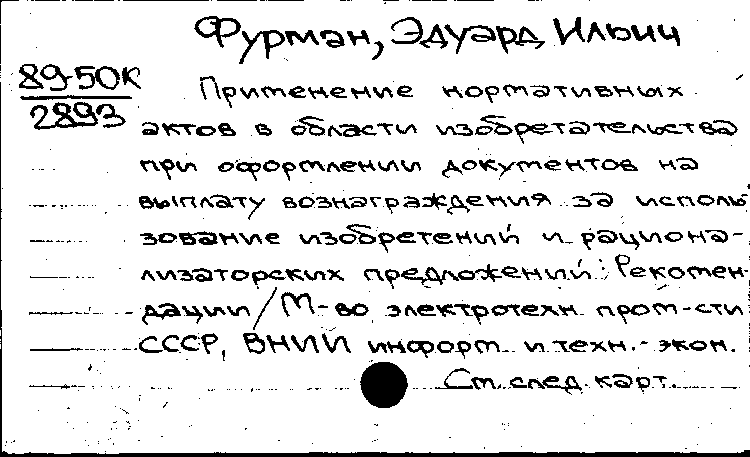 Фурман, Эдуард Ильич
89-50К
2893
Применение нормативных
актов в области изобретательства
при оформлении документов на
выплату вознаграждения за исполь
зование изобретений и рациона-
лизаторских предложений: Рекомен-
дации / М-во электротехн. пром-сти
СССР, ВНИИ информ. и техн.-экон.
См. след. карт.